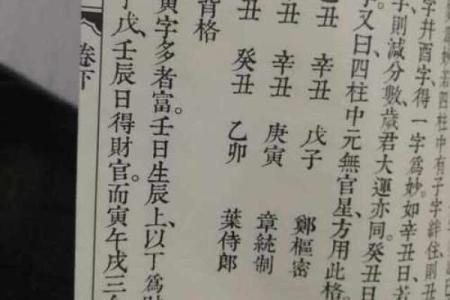 妙若四柱中有子字絆住則
字幷酉字、得一字爲妙。如辛丑日、若
字、則減分數、歲君大運亦同。癸丑日
字、又曰、四柱中元無官星、方用此格
丑 辛丑 戊子 鄭樞密
丑 辛丑 庚寅 章統制
丑 癸丑 乙卯 葉侍郎
背格
寅字多者富。壬日生辰上、以丁爲
戊、壬辰日得財官。而寅午戌三
卷下